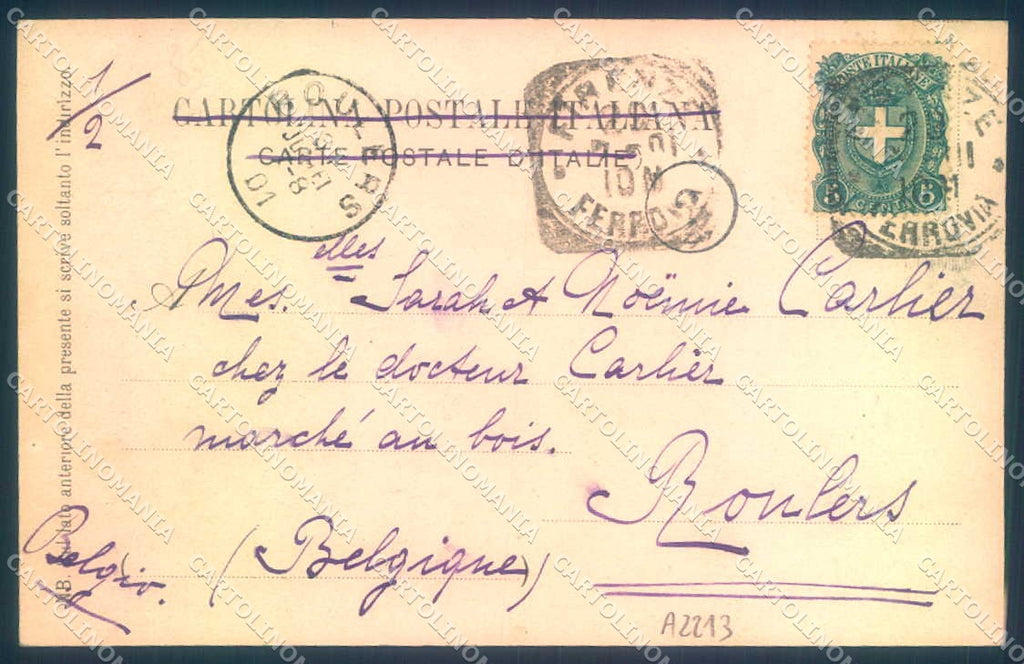 1/2
CARTOLINA POSTALE ITALIANA
CARTE POSTALE D'ITALIE
ROULERS
8
01
FIRENZE
10 M
FERROVIA
POSTE ITALIANE
5 5
FERROVIA
NB. Sul lato anteriore della presente si scrive soltanto l'indirizzo.
Mes.elles Sarah & Noëmie Carlier
chez le docteur Carlier
marché au bois.
Roulers
(Belgique)
Belgio.
A2213
CARTOLINOMANIA